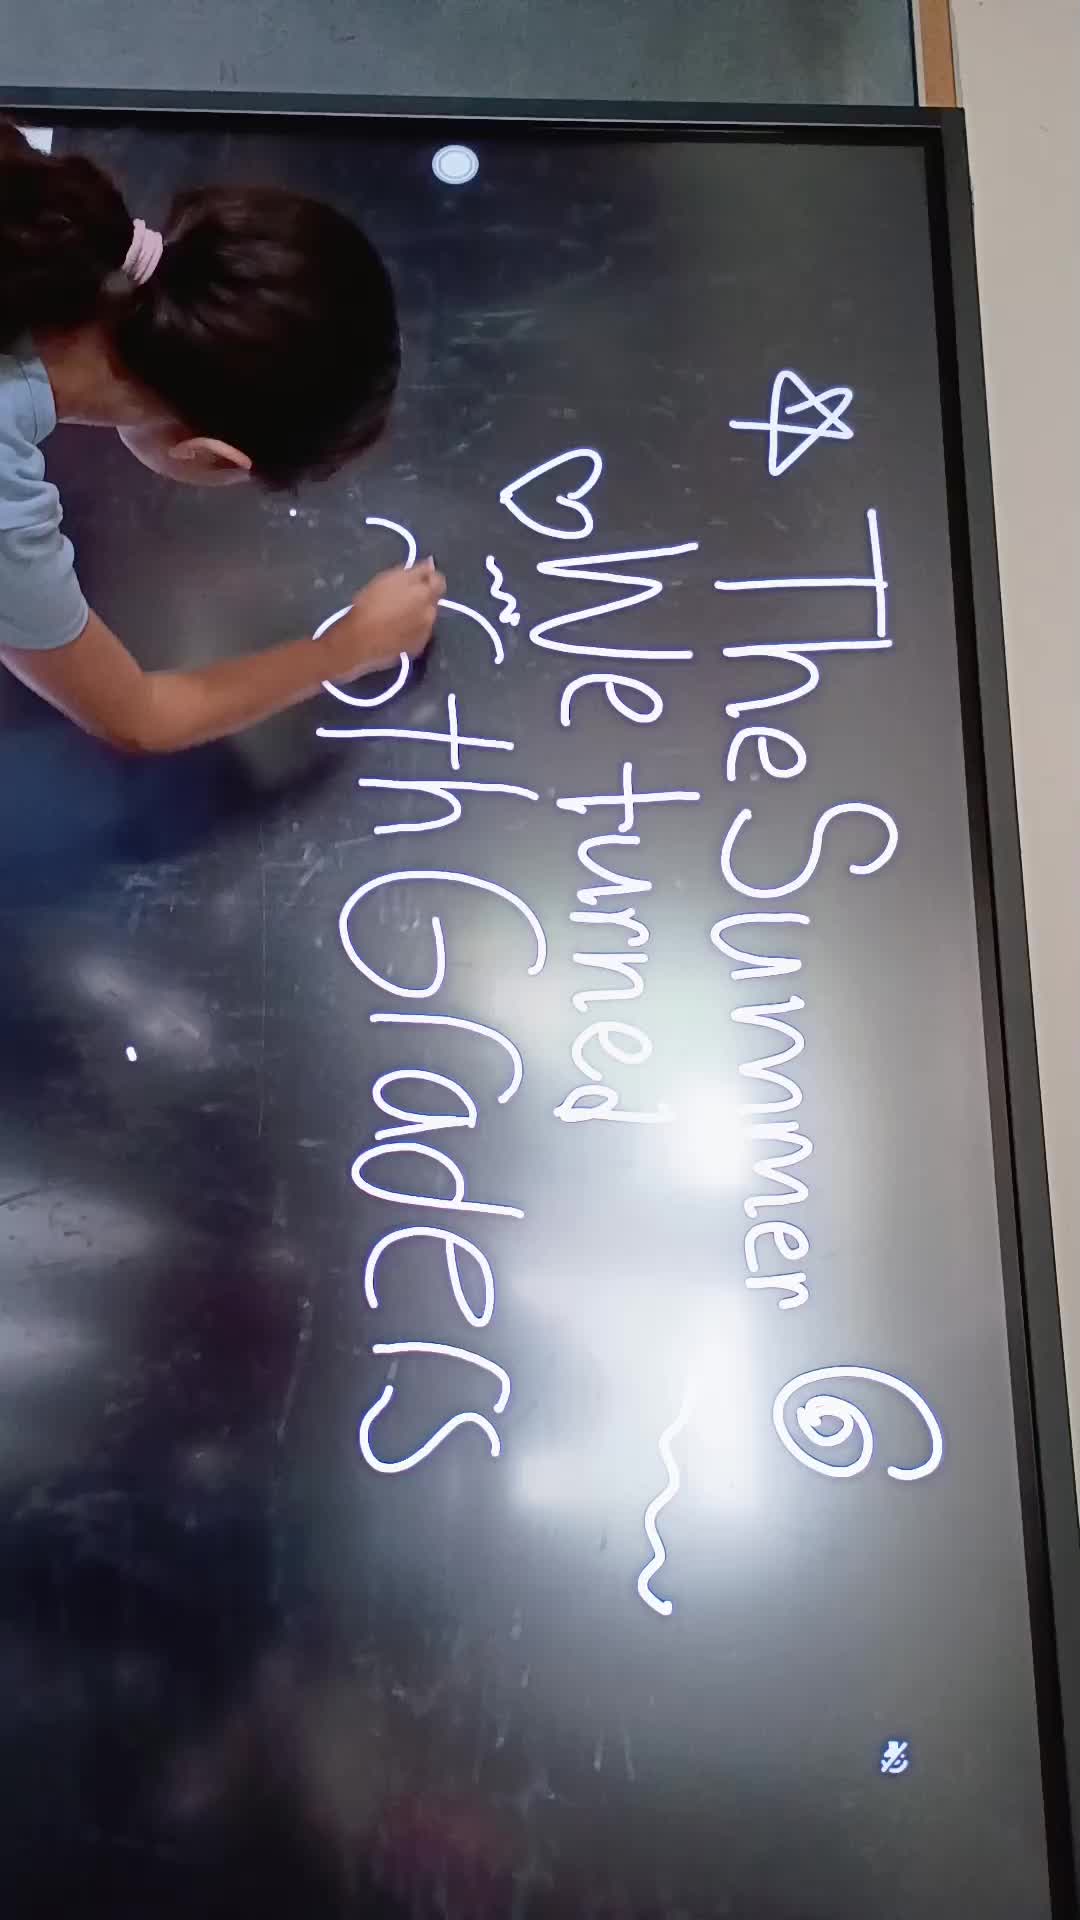 The Summer 6
We turned
6th Graders